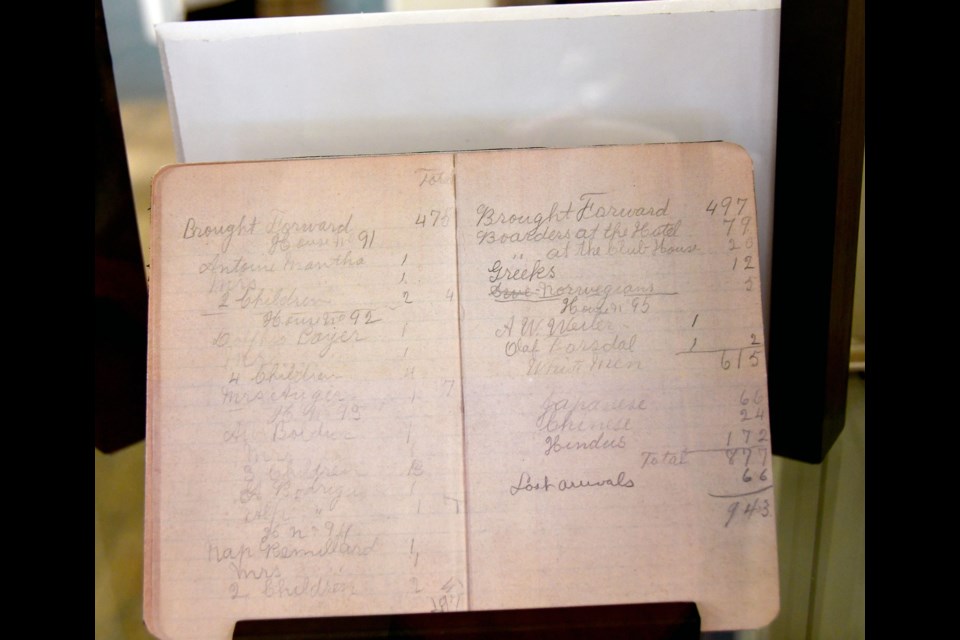 Total
Brought Forward 476
House no 91
Antoine Mantha 1
Mrs 1
2 Children 2 4
House no 92
1
Mrs 1
4 Children 4
Mrs Auger 1 7
H no 93
Boldue 1
Mrs
3 Children
1
1
H no 94
Nap Remillard 1
Mrs
2 Children 2
Brought Forward 497
Boarders at the Hotel 79
" at the Club House 20
Greeks 12
Norwegians 5
House no 95
A W. Weiler 1
Olaf 1 2
White Men 615
Japanese 66
Chinese 24
Hindus 172
Total 877
Last arrivals 66
943